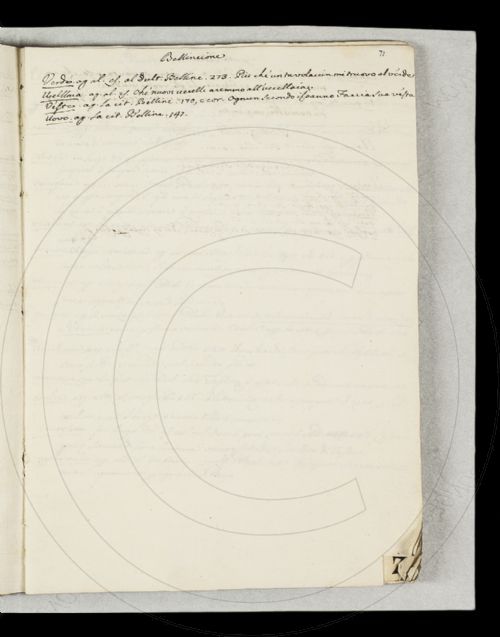 Bellincione 71
Verde. ag. al. es. al Dult. Belline. 273. Più chè un tavolaccin mi truovo al verde
Uccellaia. ag. al. es. Chè nuovi uccelli aremmo all'uccellaia
Vista. ag. la cit. Belline. 170, e cor. Ognun secondo il panno Faccia sua vesta
Uovo. ag. la cit. Belline. 147.
7